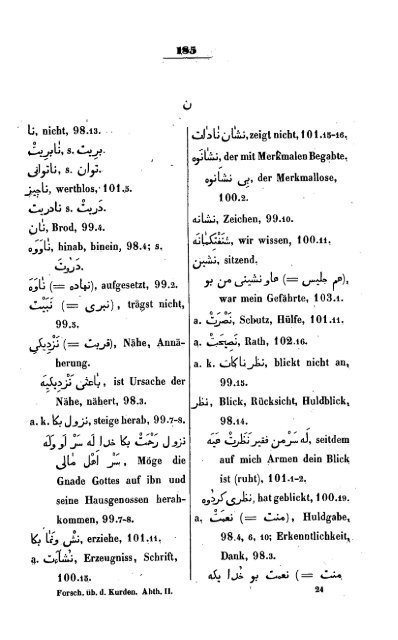 185
ن
نا, nicht, 98.13.
نابریت, s. بریت.
ناتوانی, s. توان.
ناچیز, werthlos, 101.5.
نادریت s. دریت.
نان, Brod, 99.4.
ناوه‌وه, hinab, binein, 98.4; s.
دروت.
ناوه (= نهاده), aufgesetzt, 99.2.
نبیت (= نبری), trägst nicht,
99.3.
نزدیکی (= قربت), Nähe, Annä-
herung.
باعثی نزدیکیه, ist Ursache der
Nähe, nähert, 98.3.
a. k. نزول بکا, steige herab, 99.7-8.
نزول رحمت بکا خدا له سر او وله
سر اهل مالی, Möge die
Gnade Gottes auf ibn und
seine Hausgenossen herah-
kommen, 99.7-8.
نش ونما بکا, erziehe, 101.11.
a. نشاءت, Erzeugniss, Schrift,
100.15.
Forsch. üb. d. Kurden. Abth. II.
نشان نادات, zeigt nicht, 101.15-16.
نشانوه, der mit Merkmalen Begabte,
بی نشانوه, der Merkmallose,
100.2.
نشانه, Zeichen, 99.10.
, wir wissen, 100.11.
نشین, sitzend.
هم جلیس =) هار نشینی من بو),
war mein Gefährte, 103.1.
a. نصرت, Schutz, Hülfe, 101.11.
a. نصیحت, Rath, 102.16.
a. k. نظر ناکات, blickt nicht an,
99.15.
نظر, Blick, Rücksicht, Huldblick,
98.14.
له سر من فقیر نظرت هیه, seitdem
auf mich Armen dein Blick
ist (ruht), 101.1-2.
نظری کردوه, hat geblickt, 100.19.
a. نعمت (= منت), Huldgabe,
98.4, 6, 10; Erkenntlichkeit,
Dank, 98.3.
نعمت بو خدا یکه (= منت)
24